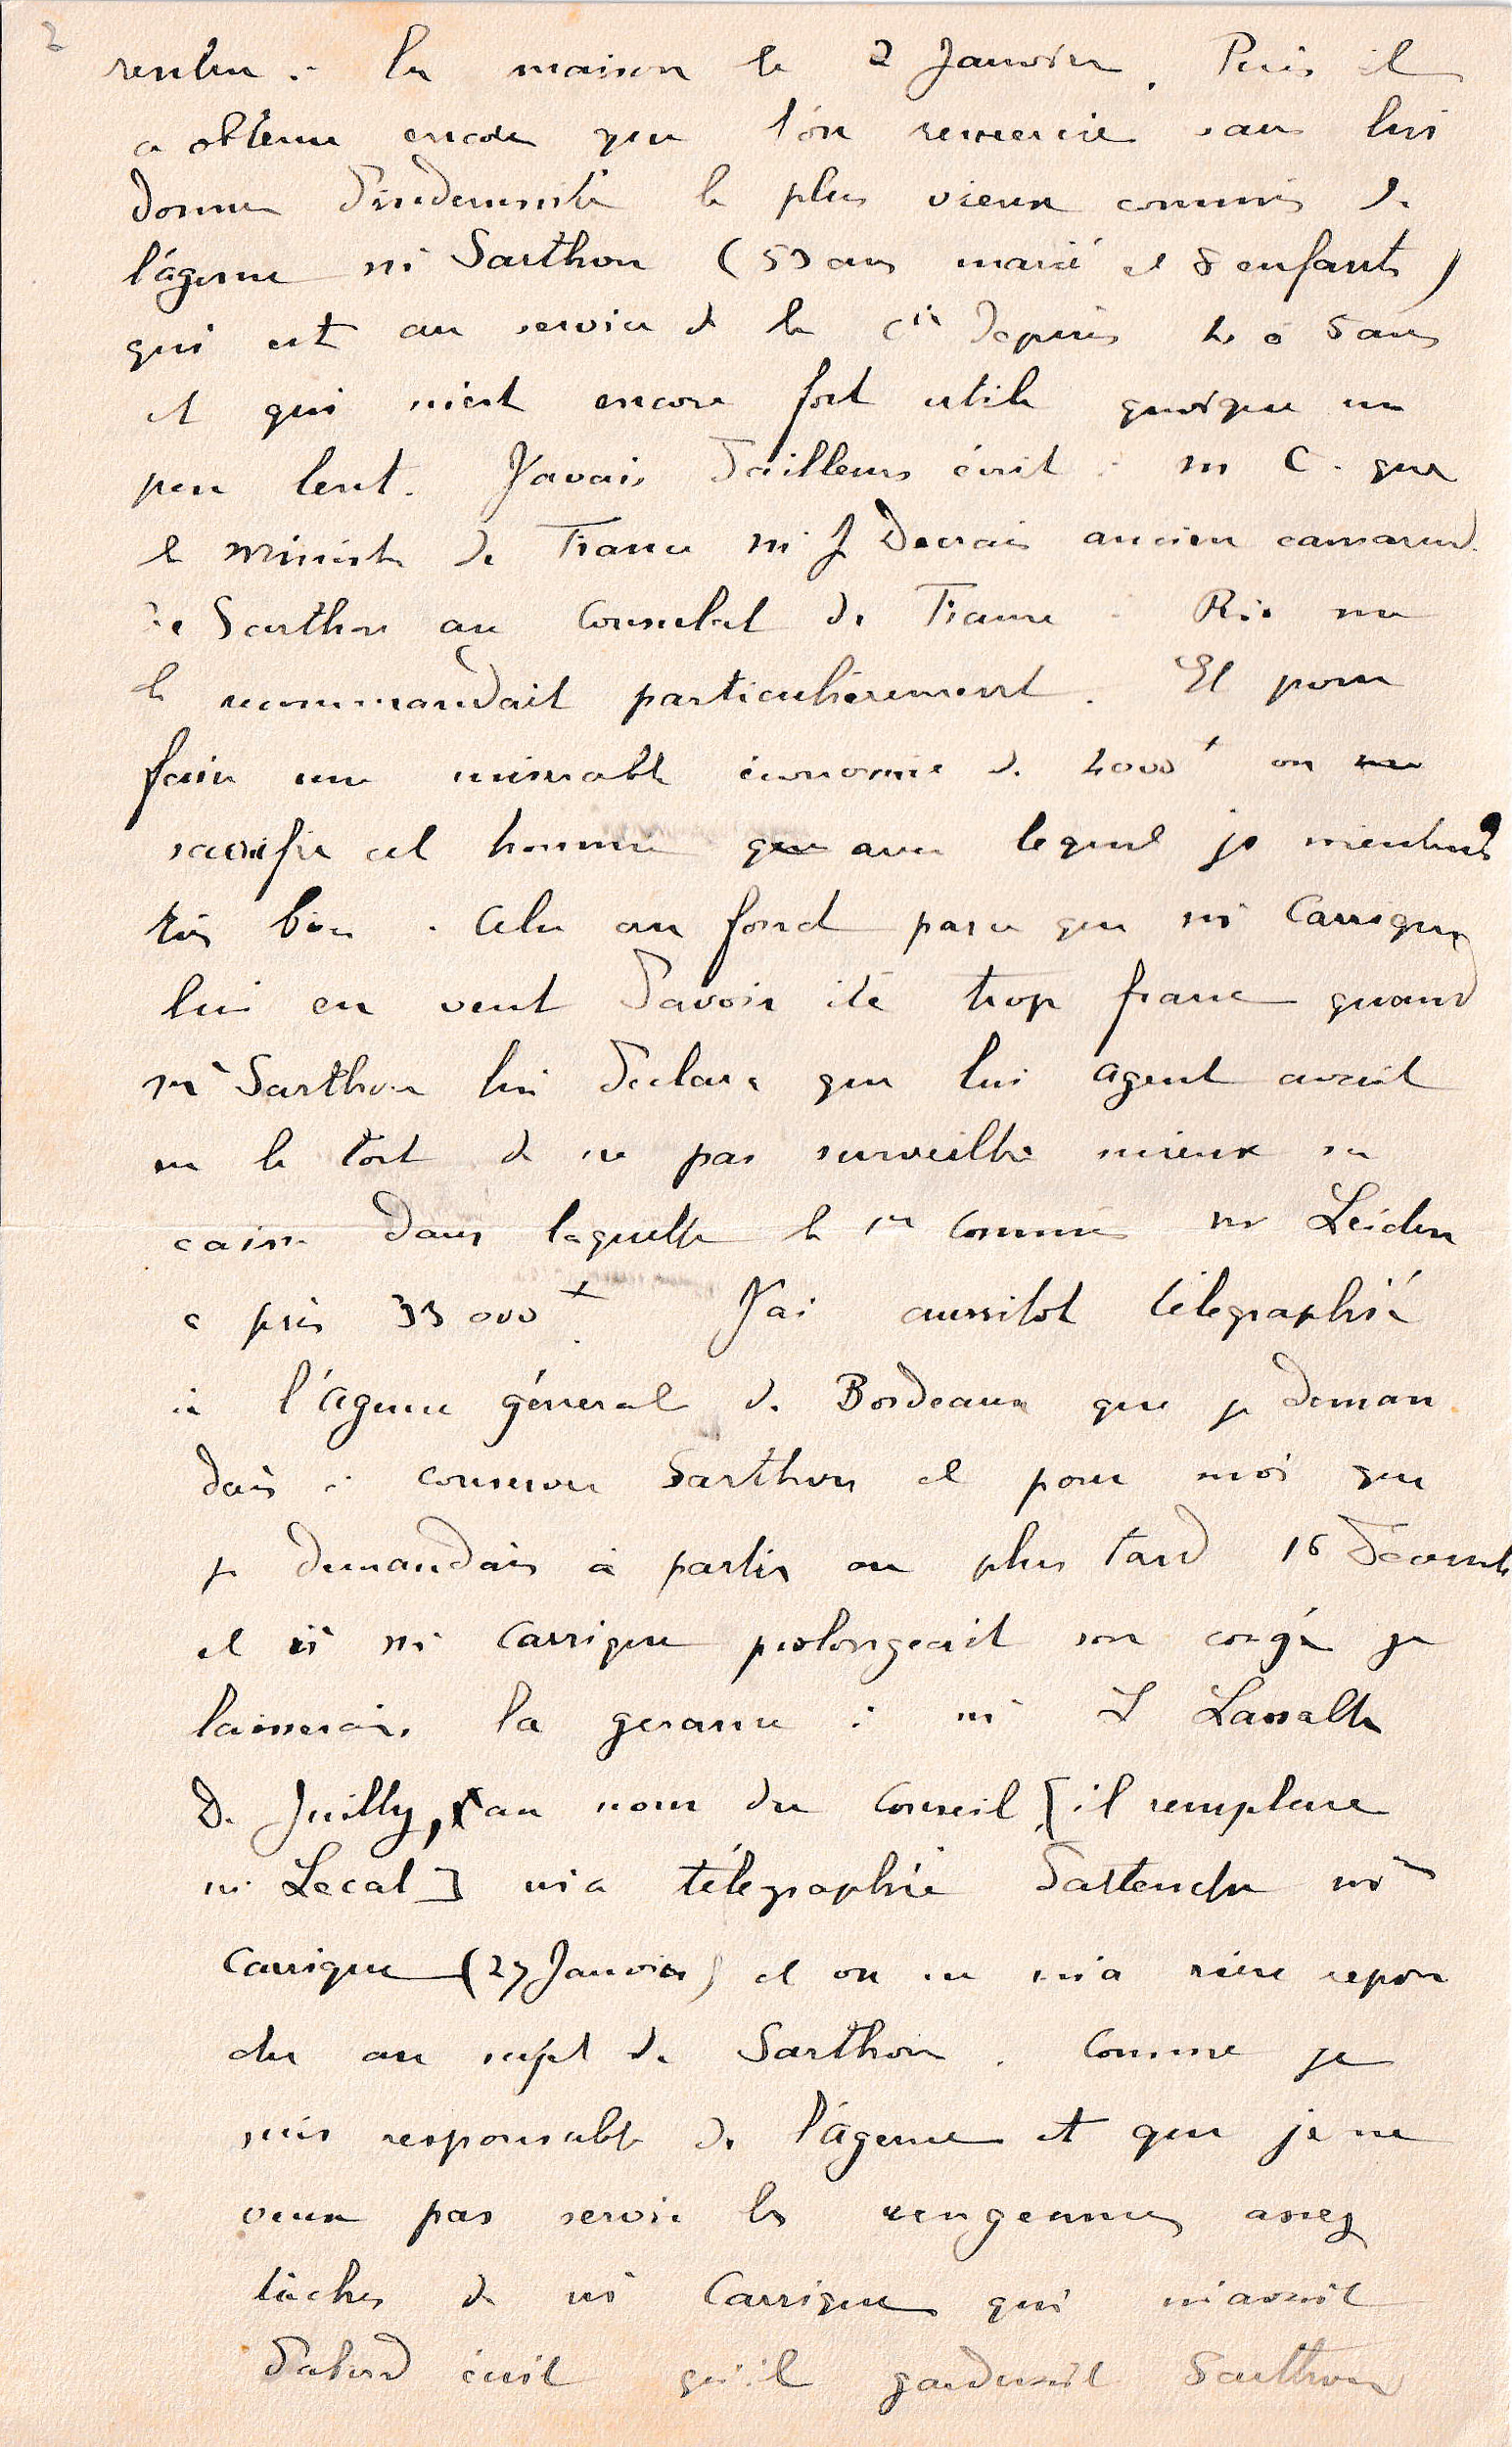 2
rentrer à la maison le 2 Janvier. Puis il
a obtenu encore que l'on remercie sans lui
donner d'indemnité le plus vieux commis de
l'agence Mr Sarthou (53 ans marié et 8 enfants)
qui est au service de la Cie depuis 4 à 5 ans
et qui m'est encore fort utile quoique un
peu lent. J'avais d'ailleurs écrit à Mr C. que
le Ministre de France Mr J Decrais ancien camarade
de Sarthou au Consulat de France à Rio me
le recommandait particulièrement. Et pour
faire une misérable économie de 4000 on
sacrifie cet homme avec lequel je m'entends
très bien. Cela au fond parce que Mr Carrigue
lui en veut d'avoir été trop franc quand
Mr Sarthou lui déclara que lui agent avait
eu le tort de ne pas surveiller mieux sa
caisse dans laquelle le 1er Commis Mr Leiden
a pris 33 000 J'ai aussitot télégraphié
à l'agence général de Bordeaux que je deman
dais à conserver Sarthou et pour moi que
je demandais à partir au plus tard 16 Décembre
et si Mr Carrigue prolongeait son congé je
laisserais la gerance à Mr L Lassalle
D. Juilly, au nom du Conseil [il remplace
Mr Lecat] m'a télégraphié d'attendre Mr
Carrigue (27 Janvier) et on ne m'a rien repon
du au sujet de Sarthou. Comme je
suis responsable de l'agence et que je ne
veux pas servir les vengeances assez
lâches de Mr Carrigue qui m'avait
d'abord écrit qu'il garderait Sarthou